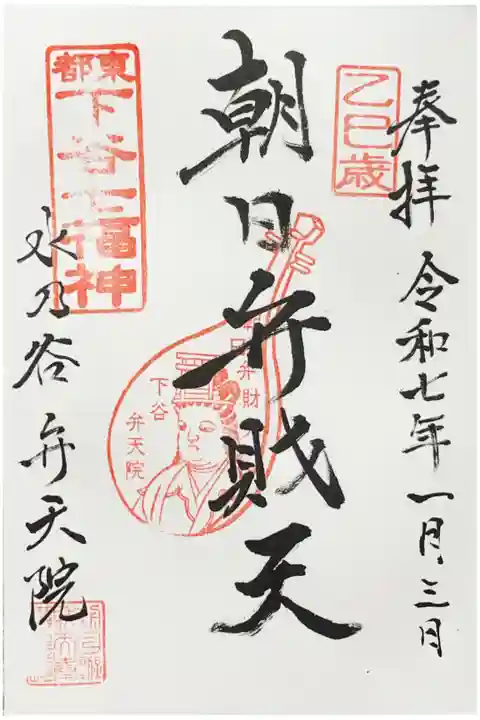 乙巳歳
奉拝 令和七年一月三日
朝日弁財天
東都
下谷七福神
水乃谷弁天院
弁財
下谷
弁天院